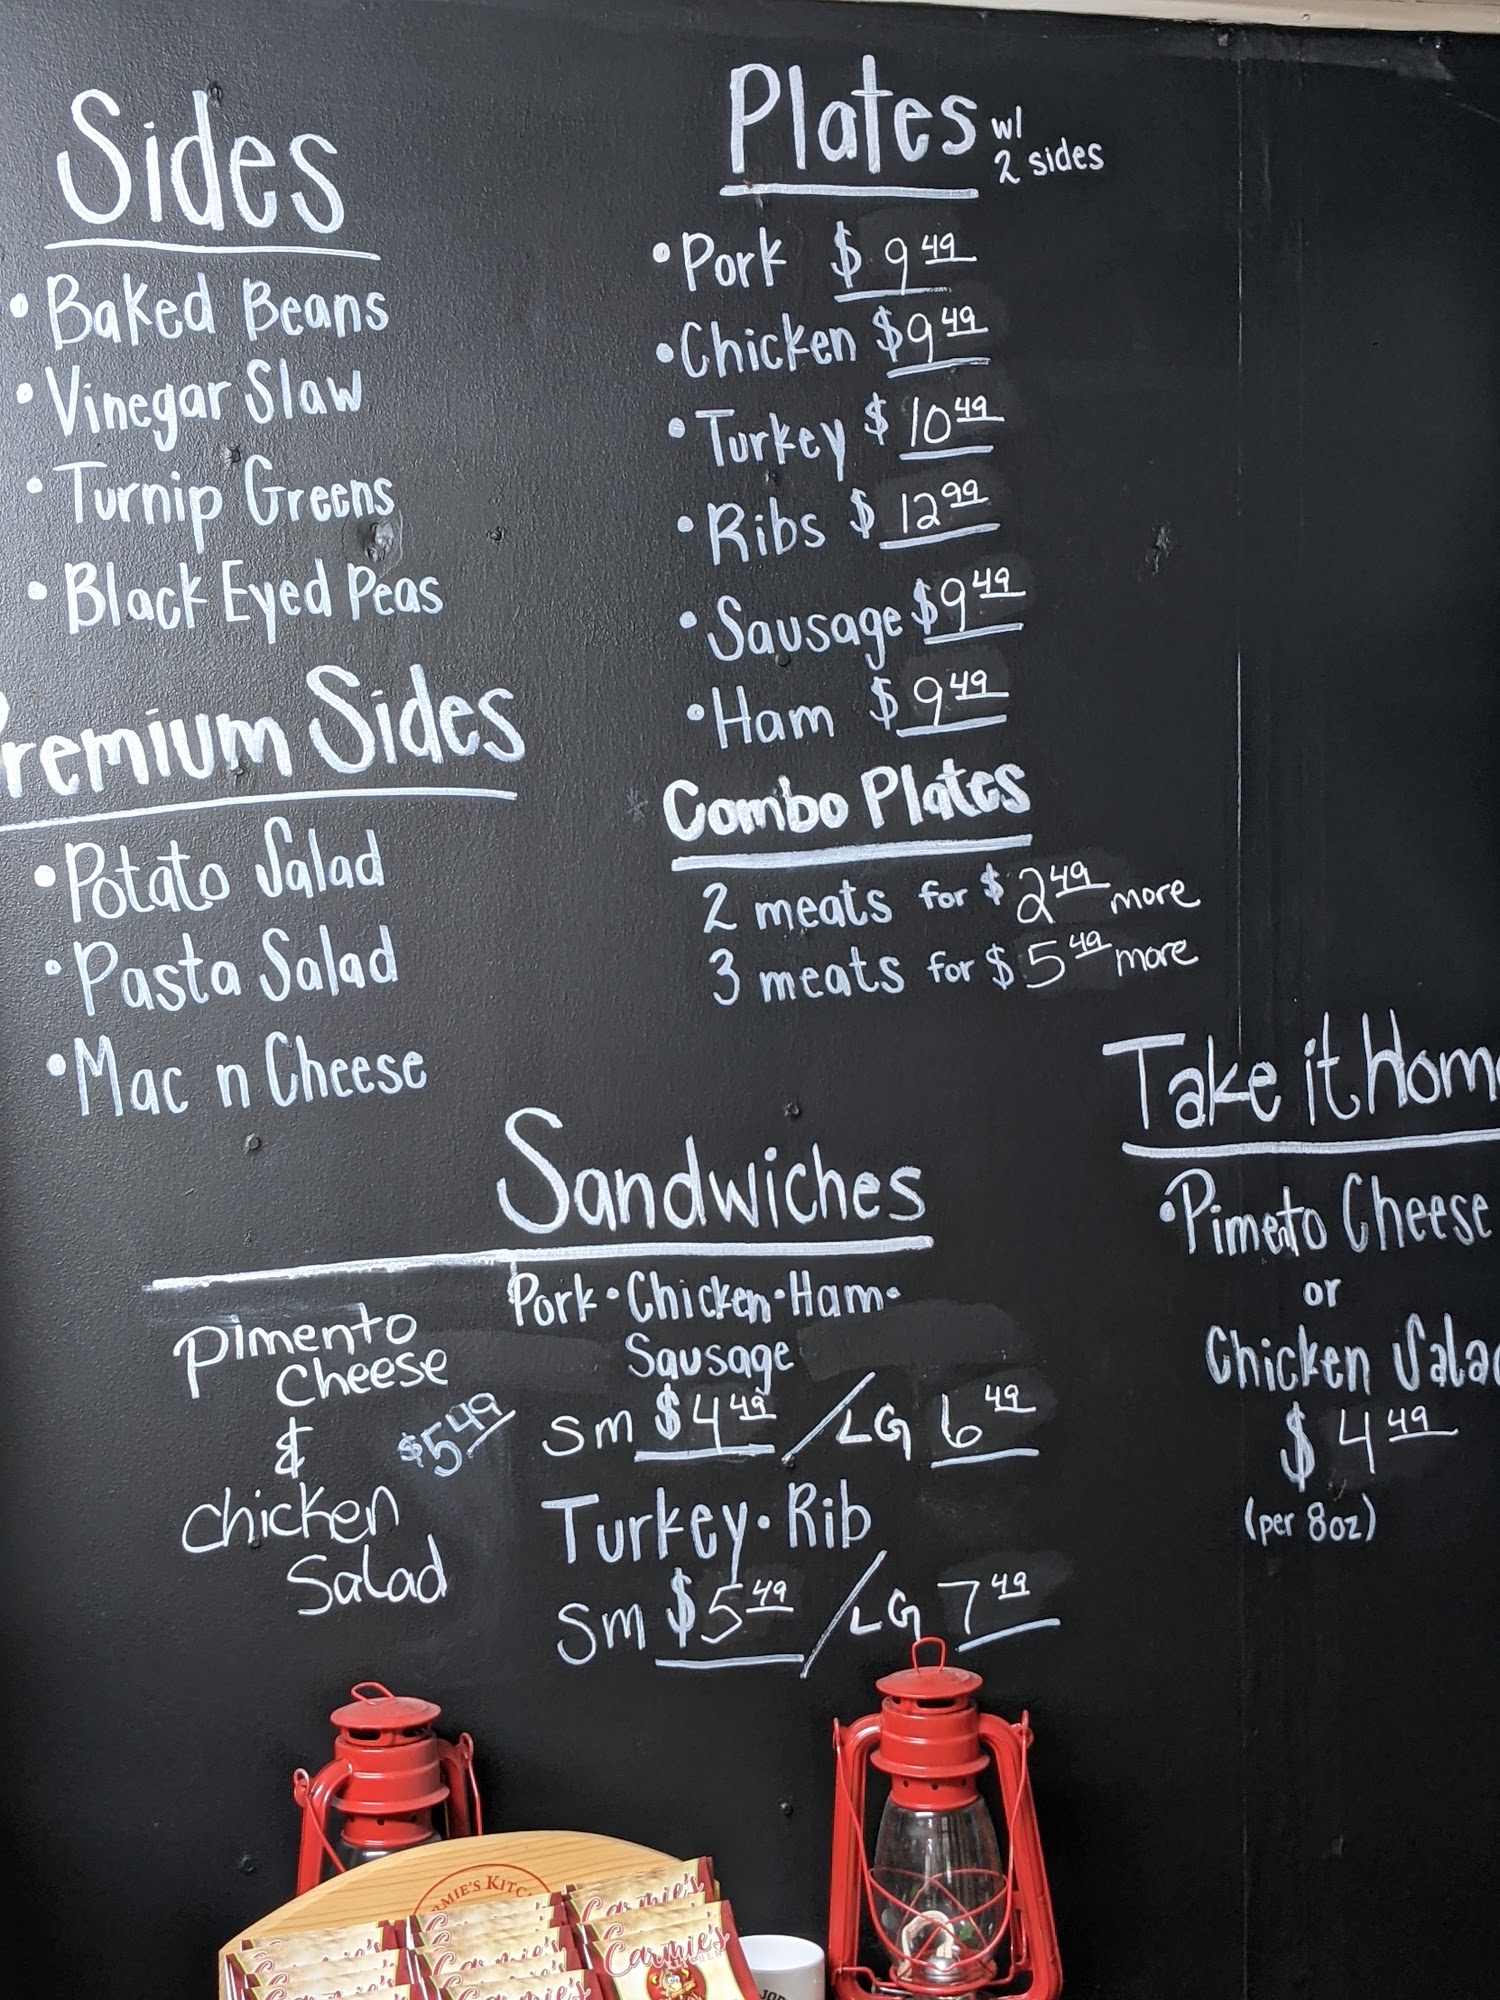 Sides
• Baked Beans
• Vinegar Slaw
• Turnip Greens
• Black Eyed Peas
Premium Sides
• Potato Salad
• Pasta Salad
• Mac n Cheese
Plates w/ 2 sides
• Pork $ 9 49
• Chicken $9 49
• Turkey $ 10 49
• Ribs $ 12 99
• Sausage $9 49
• Ham $ 9 49
* Combo Plates
2 meats for $ 2 49 more
3 meats for $ 5 49 more
Sandwiches
Pimento
Cheese
&
Chicken
Salad
$5 49
Pork • Chicken • Ham •
Sausage
Sm $4 49 / LG 6 49
Turkey • Rib
Sm $5 49 / LG 7 49
Take it Hom
• Pimento Cheese
or
Chicken Sala
$ 4 49
(per 8oz)
Carmie's
Carmie's
Carmie's
Carmie's